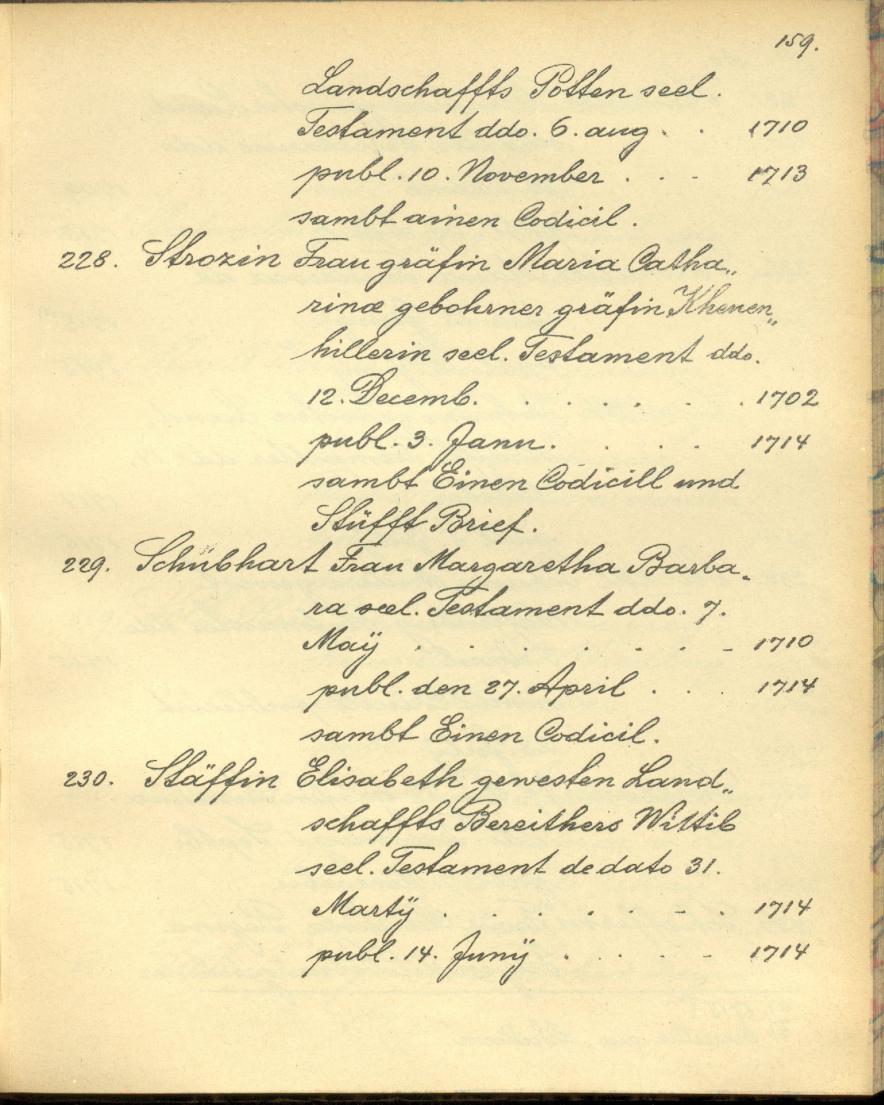 159.
Landschaffts Potten seel.
Testament ddo. 6. aug. . 1710
publ. 10. November . . . 1713
sambt ainen Codicil.
228. Strozin Frau gräfin Maria Catha„
rinæ gebohrner gräfin Kheven„
hillerin seel. Testament ddo.
12. Decemb. . . . . . . 1702
publ. 3. Janu. . . . . 1714
sambt Einen Codicill und
Stüfft Brief.
229. Schübhart Frau Margaretha Barba„
ra seel. Testament ddo. 7.
Maÿ . . . . . . . - 1710
publ. den 27. April . . . 1714
sambt Einen Codicil.
230. Stäffin Elisabeth gewesten Land„
schaffts Bereithers Wittib
seel. Testament de dato 31.
Martÿ . . . . . - . 1714
publ. 14. Junÿ . . . - . 1714